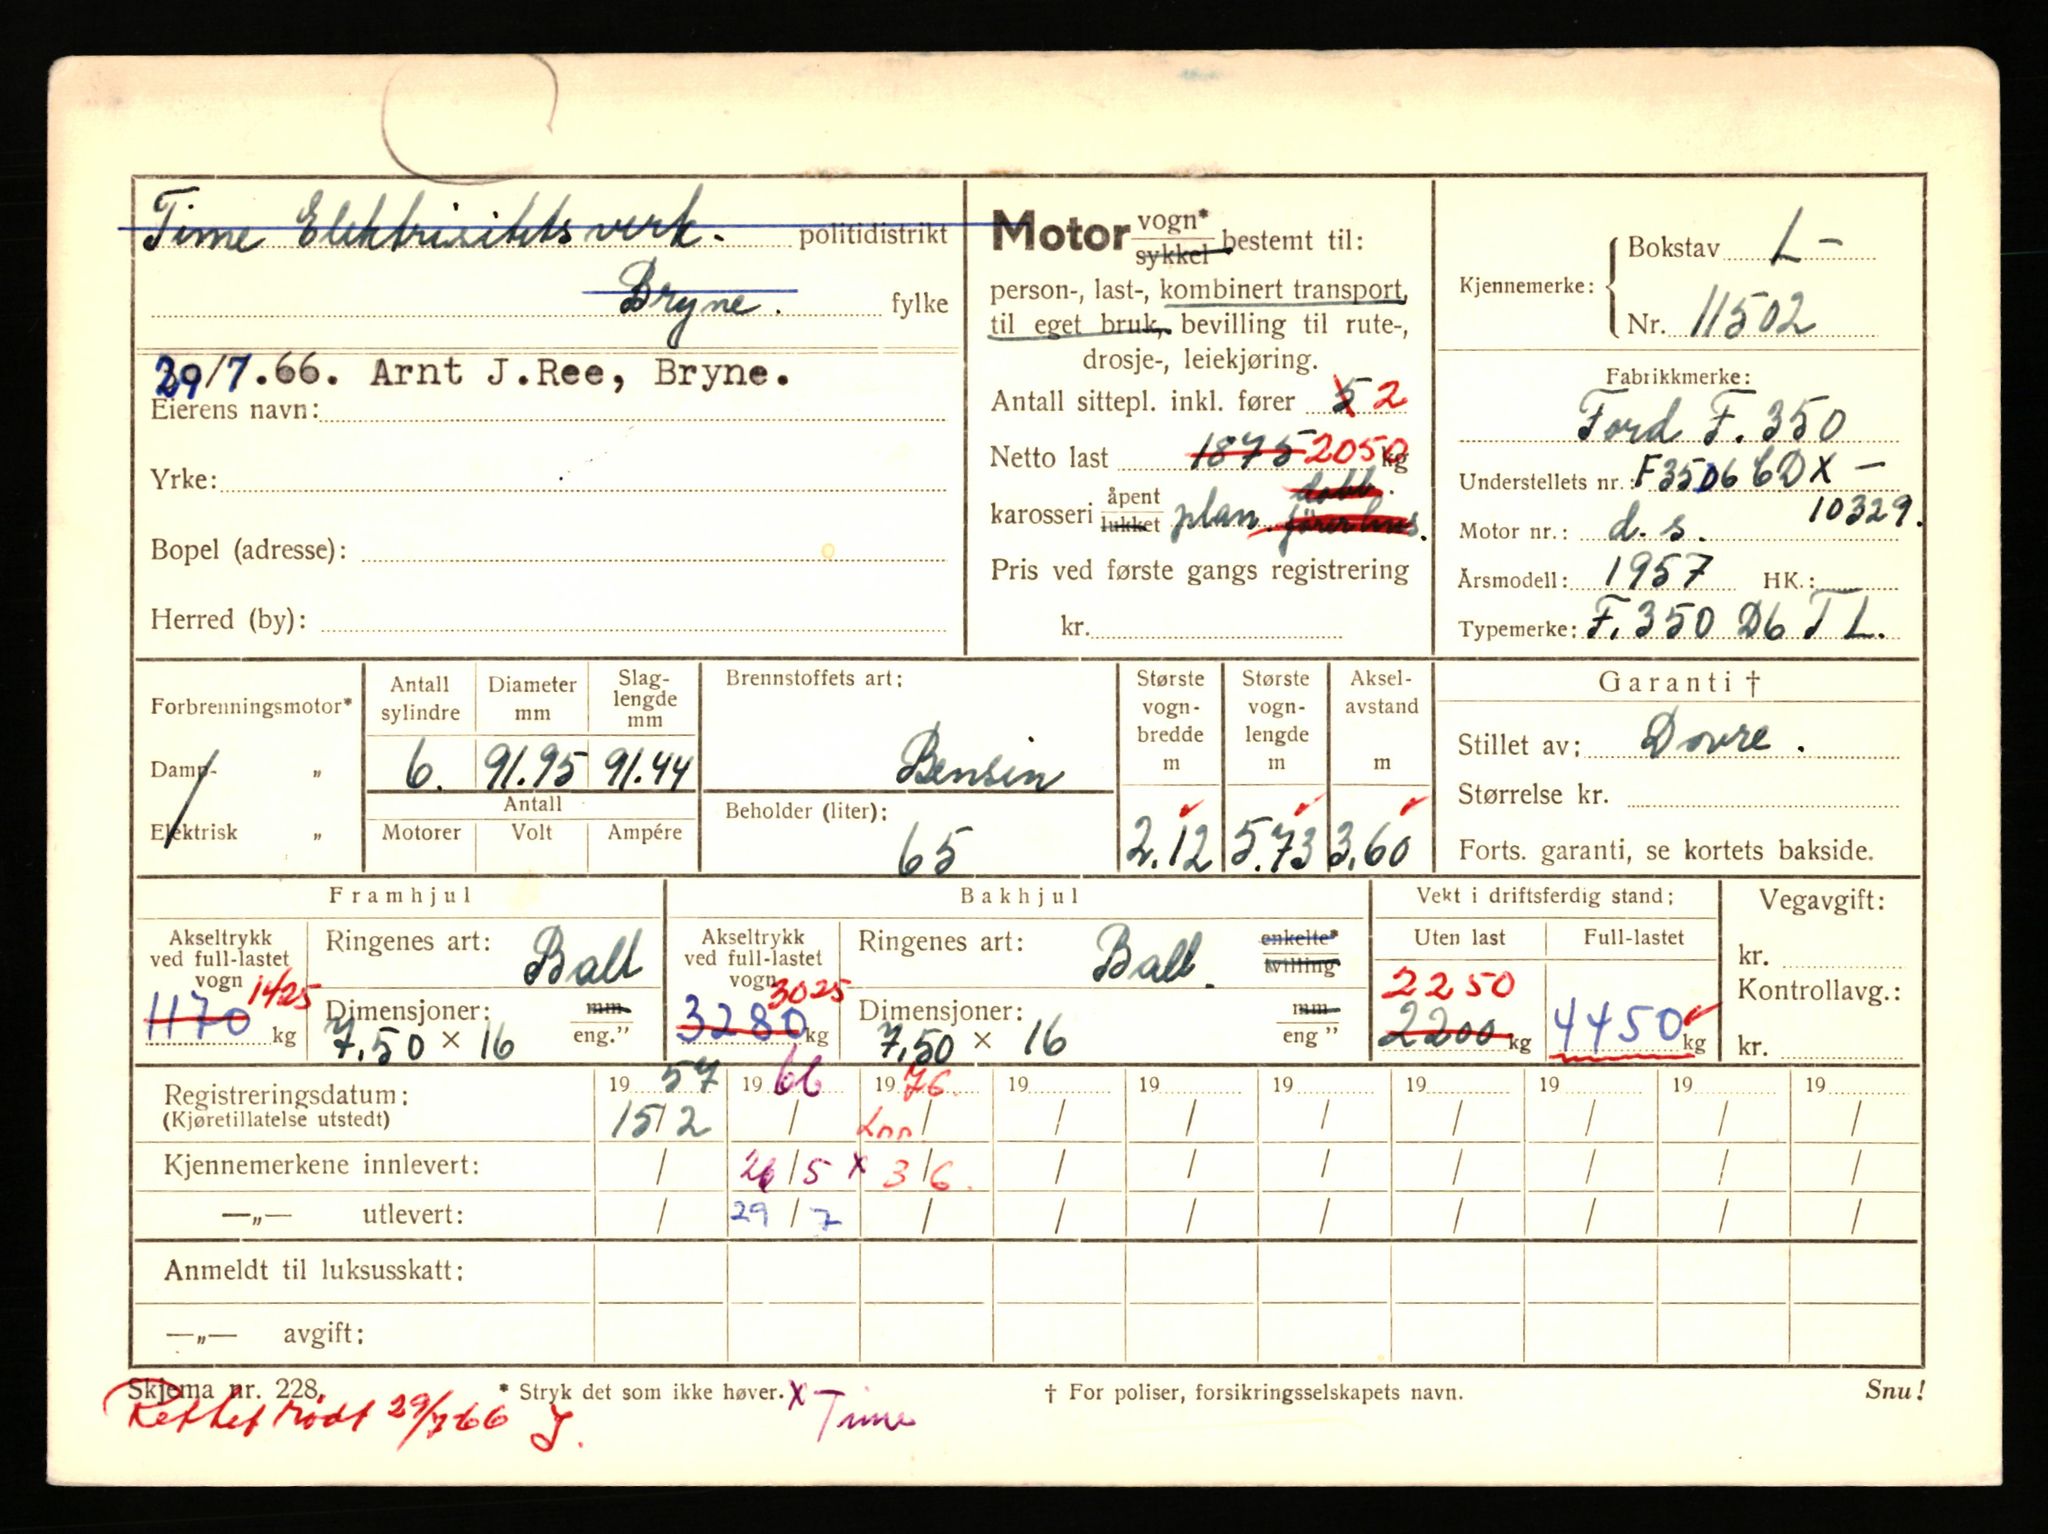 Time Elektrisitetsverk. politidistrikt
Bryne. fylke
29/7.66. Arnt J.Ree, Bryne.
Eierens navn:
Yrke:
Bopel (adresse):
Herred (by):
Motor vogn* sykkel bestemt til:
person-, last-, kombinert transport,
til eget bruk, bevilling til rute-,
drosje-, leiekjøring.
Antall sittepl. inkl. fører 5 2
Netto last 1875 2050 kg
karosseri åpent lukket plan. dobb. førerhus.
Pris ved første gangs registrering
kr.
Kjennemerke: Bokstav L-
Nr. 11502
Fabrikkmerke:
Ford F. 350
Understellets nr.: F35D6 CDX -
10329.
Motor nr.: d. s.
Årsmodell: 1957 HK.:
Typemerke: F. 350 D6 TL.
Forbrenningsmotor*
Damp- „
Elektrisk „
Antall sylindre
Diameter mm
Slag-lengde mm
6. 91.95 91.44
Antall
Motorer Volt Ampére
Brennstoffets art:
Bensin
Beholder (liter):
65
Største vogn-bredde m
2.12
Største vogn-lengde m
5.73
Aksel-avstand m
3.60
Garanti †
Stillet av: Dovre.
Størrelse kr.
Forts. garanti, se kortets bakside.
Framhjul
Akseltrykk ved full-lastet vogn
1425
1170 kg
Ringenes art: Ball
Dimensjoner: mm eng."
7,50 × 16
Bakhjul
Akseltrykk ved full-lastet vogn
3025
3280 kg
Ringenes art: Ball. enkelte* tvilling
Dimensjoner: mm eng"
7,50 × 16
Vekt i driftsferdig stand:
Uten last Full-lastet
2250
2200 kg 4450 kg
Vegavgift:
kr.
Kontrollavg.:
kr.
Registreringsdatum: 19 57 19 66 19 76. 19 19 19 19 19 19 19
(Kjøretillatelse utstedt) 15/2 / / / / / / / / /
Kjennemerkene innlevert: / 26/5 x 3/6. / / / / / / /
—„— utlevert: / 29/7 / / / / / / / /
Anmeldt til luksusskatt:
—„— avgift:
Skjema nr. 228.
* Stryk det som ikke høver.
x Time
† For poliser, forsikringsselskapets navn.
Snu!
Rettet rødt 29/7 66 J.